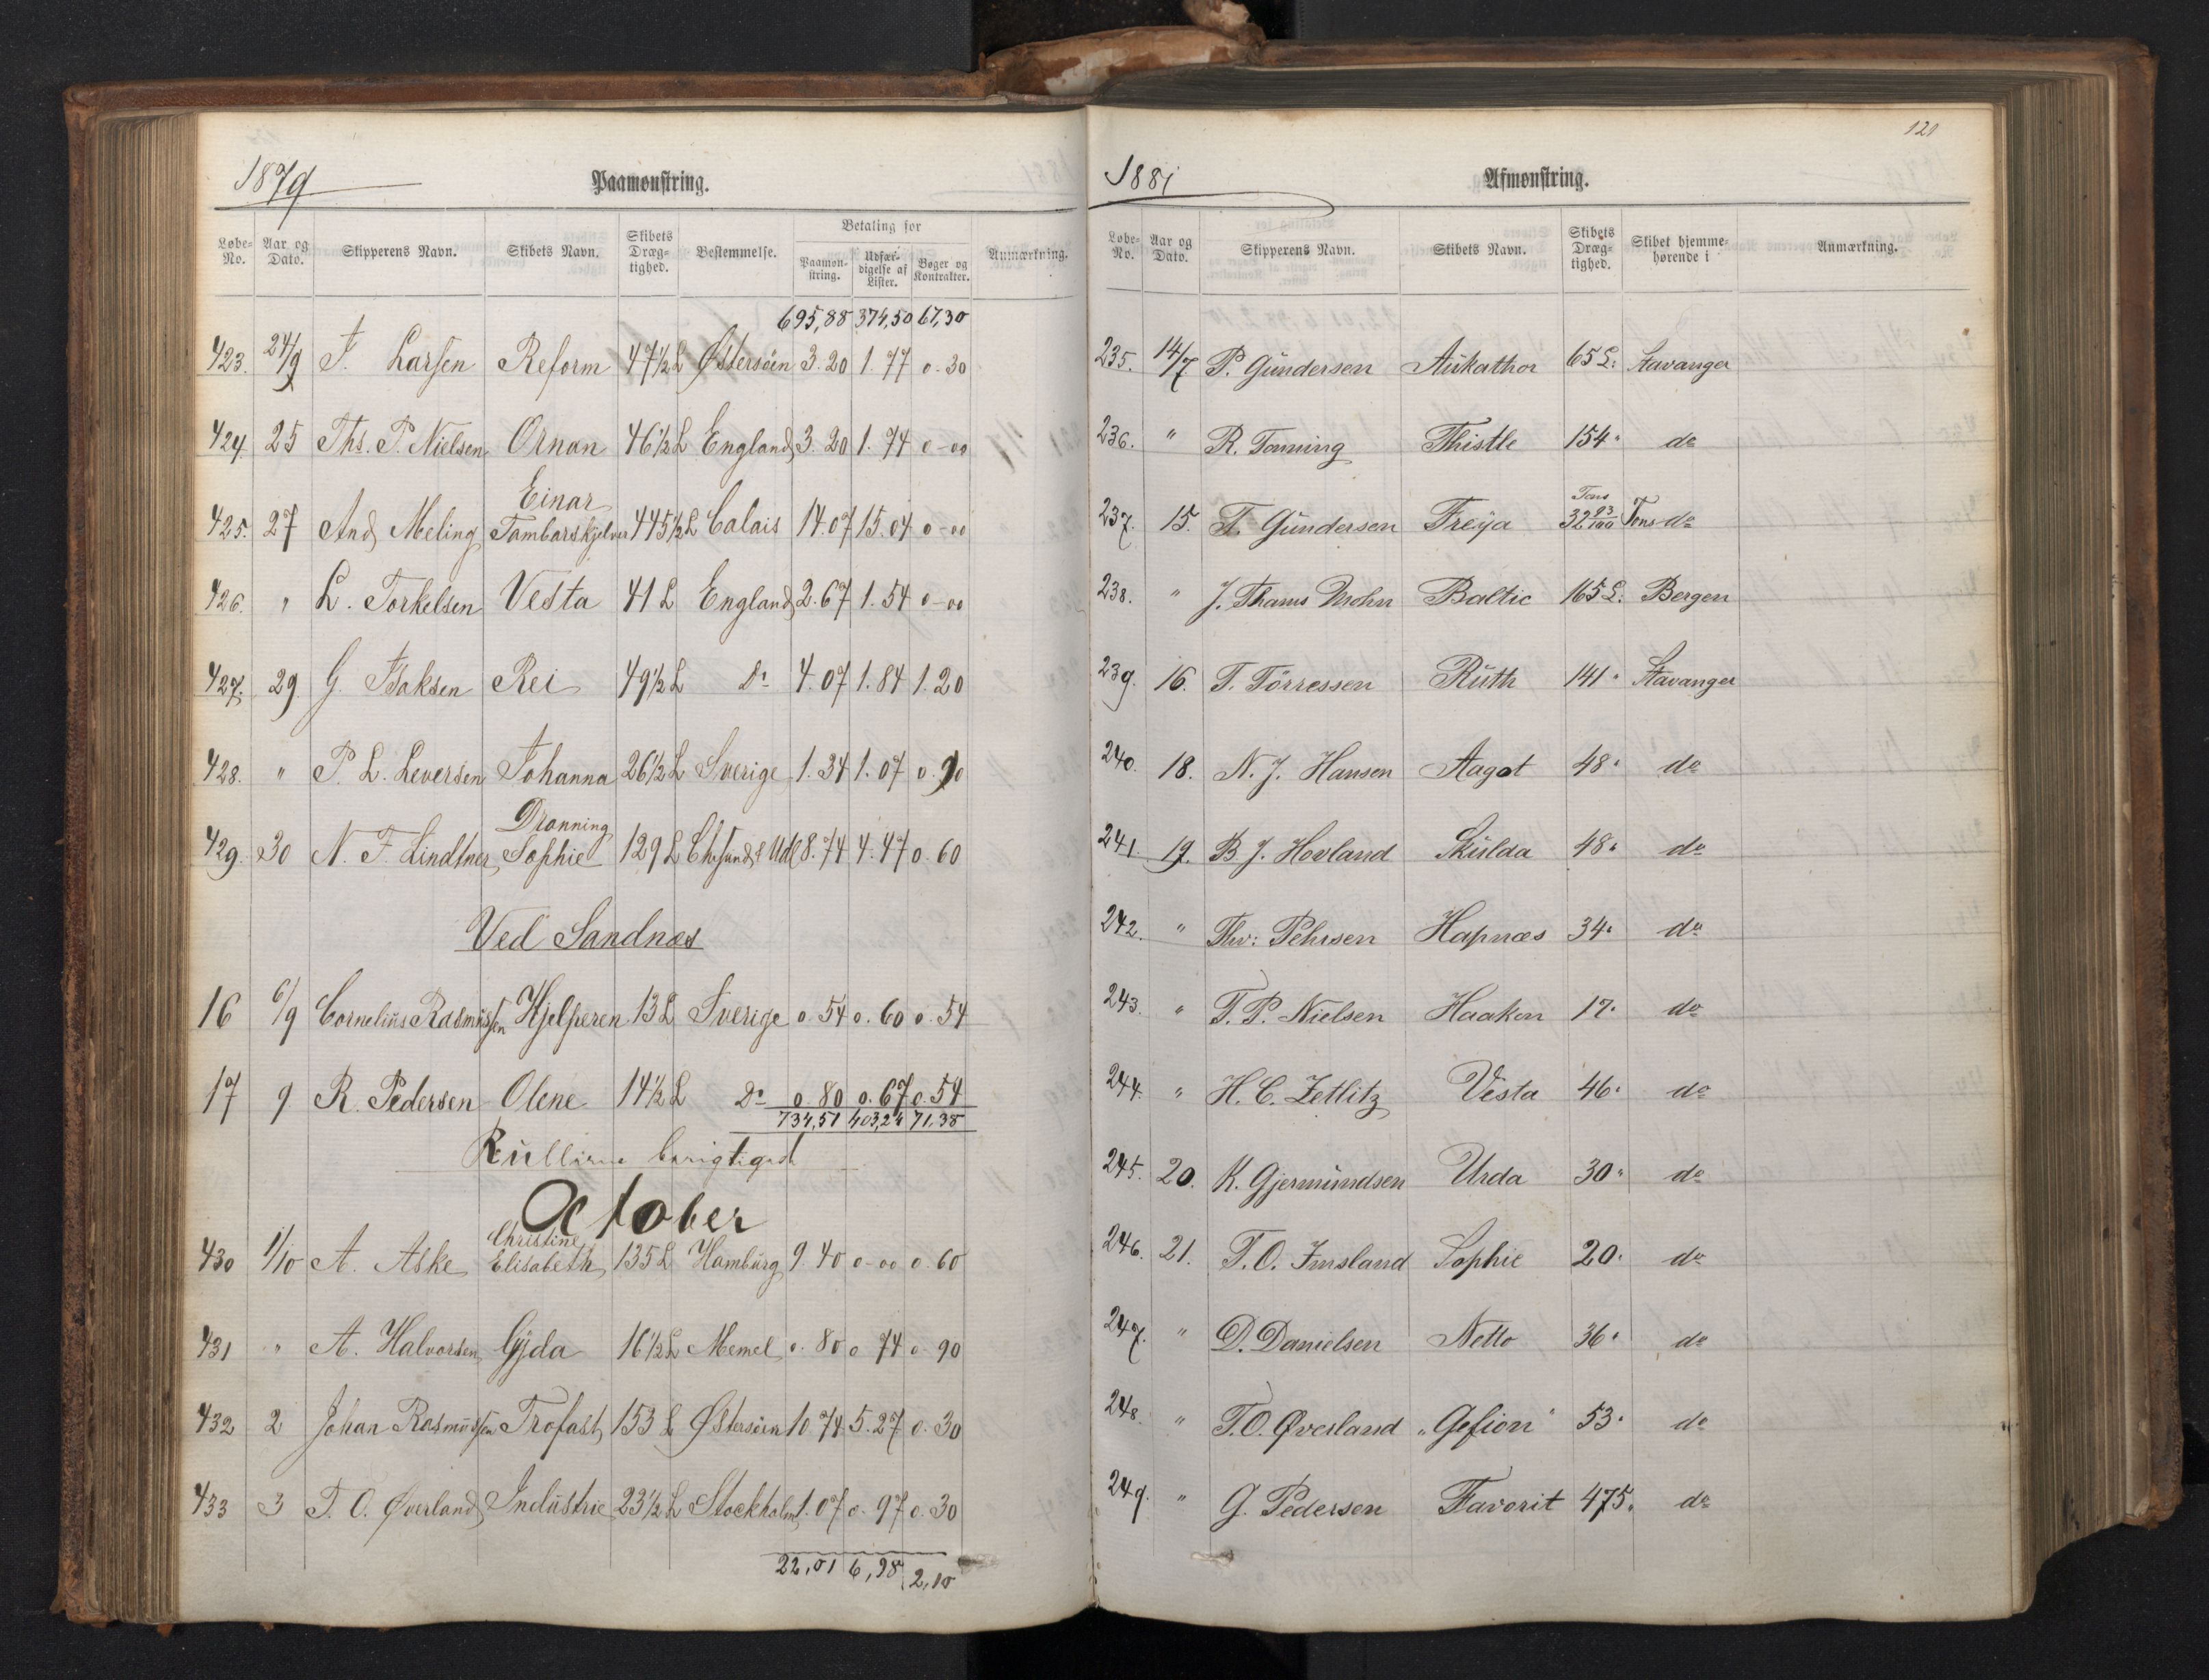 1879
Paamønstring.
Løbe-No. Aar og Dato. Skipperens Navn. Skibets Navn. Skibets Dræg-tighed. Bestemmelse. Betaling for Paamøn-string. Udfær-digelse af Lister. Bøger og Kontrakter. Anmærkning.
695,88 374,50 67,30
423. 24/9 J. Larsen Reform 47½ L Østersöen 3.20 1.77 0.30
424. 25 Ths. P. Nielsen Ornan 46½ L England 3.20 1.74 0-00
425. 27 And Meling Einar Tambarskjelver 445½ L Calais 14.07 15.04 0-00
426. " L. Torkelsen Vesta 41 L England 2.67 1.54 0-00
427. 29 G. Isaksen Rei 49½ L Do 4.07 1.84 1.20
428. " P. L. Leversen Johanna 26½ L Sverige 1.34 1.07 0.90
429. 30 N. F. Lindtner Dronning Sophie 129 L Chrsund & Udl 8.74 4.47 0.60
Ved Sandnæs
16 6/9 Cornelius Rasmussen Hjelperen 13 L Sverige 0.54 0.60 0.54
17 9 R. Pedersen Olene 14½ L Do 0.80 0.67 0.54
734,51 403,24 71,38
Rullerne berigtiged
October
430 1/10 A. Aske Christine Elisabeth 135 L Hamburg 9 40 0-00 0.60
431 " A. Halvorsen Gyda 16½ L Memel 0.80 0 74 0.90
432 2 Johan Rasmussen Trofast 153 L Østersöen 10 74 5.27 0.30
433 3 T. O. Øverland Industrie 23½ L Stockholm 1.07 0.97 0.30
22,01 6,98 2,10
121
1881
Afmønstring.
Løbe-No. Aar og Dato. Skipperens Navn. Skibets Navn. Skibets Dræg-tighed. Skibet hjemme-hørende i Anmærkning.
235. 14/7 P. Gundersen Aukathor 65 L. Stavanger
236. " R. Tonning Thistle 154 " do
237. 15. T. Gundersen Freya Tons 32 93/100 Tons do
238. " J. Thams Baltic 165 L. Bergen
239. 16. T. Törressen Ruth 141 " Stavanger
240. 18. N. J. Hansen Aagot 48 " do
241. 19. B. J. Hovland Skulda 48 " do
242. " Thv: Pehrsen Hapnæs 34 " do
243. " T. P. Nielsen Haakon 17 " do
244. " H. C. Zetlitz Vesta 46 " do
245. 20. K. Gjermundsen Urda 30 " do
246. 21. T. O. Imsland Sophie 20 " do
247. " D. Danielsen Netto 36 " do
248. " T. O. Øverland "Gefion" 53 " do
249. " G. Pedersen Favorit 475 " do